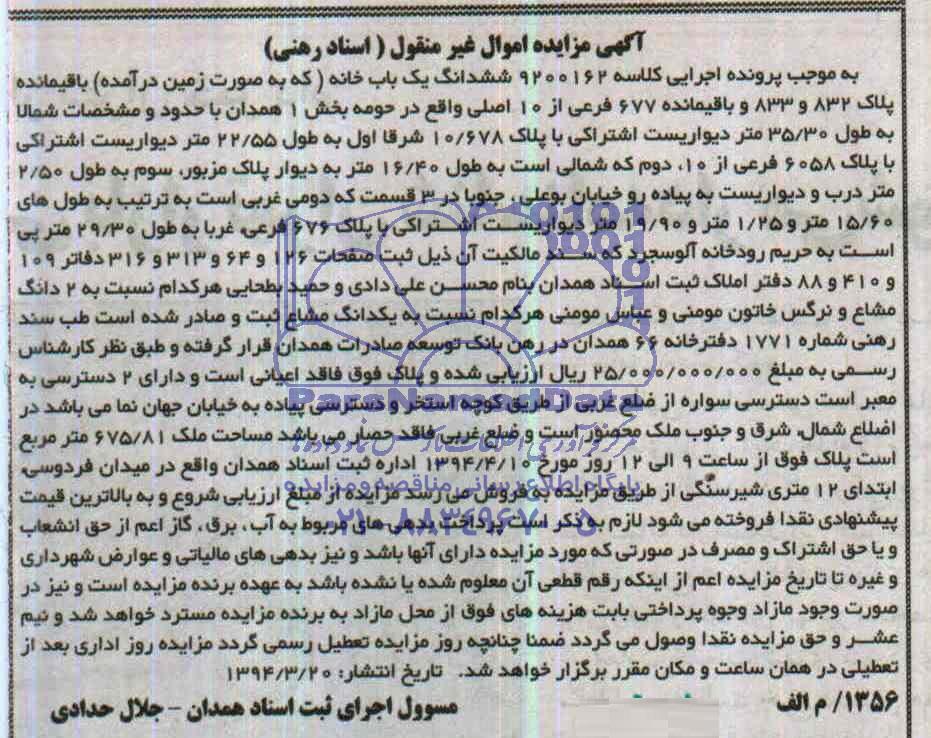 آگهی مزایده اموال غیر منقول ( اسناد رهنی)
به موجب پرونده اجرایی کلاسه ۹۲۰۰۱۶۲ ششدانگ یک باب خانه ( که به صورت زمین درآمده) باقیمانده
پلاک ۸۳۲ و ۸۳۳ و باقیمانده ۶۷۷ فرعی از ۱۰ اصلی واقع در حومه بخش ۱ همدان با حدود و مشخصات شمالا
به طول ۳۵/۳۰ متر دیواریست اشتراکی با پلاک ۱۰/۶۷۸ شرقا اول به طول ۲۲/۵۵ متر دیواریست اشتراکی
با پلاک ۶۰۵۸ فرعی از ۱۰، دوم که شمالی است به طول ۱۶/۴۰ متر به دیوار پلاک مزبور، سوم به طول ۲/۵۰
متر درب و دیواریست به پیاده رو خیابان بوعلی، جنوبا در ۳ قسمت که دومی غربی است به ترتیب به طول های
۱۵/۶۰ متر و ۱/۲۵ متر و ۱۹/۹۰ متر دیواریست اشتراکی با پلاک ۶۷۶ فرعی، غربا به طول ۲۹/۳۰ متر پی
است به حریم رودخانه آلوسجرد که سند مالکیت آن ذیل ثبت صفحات ۱۲۶ و ۶۴ و ۳۱۳ و ۳۱۶ دفاتر ۱۰۹
و ۴۱۰ و ۸۸ دفتر املاک ثبت اسناد همدان بنام محسن علی دادی و حمید بطحایی هرکدام نسبت به ۲ دانگ
مشاع و نرگس خاتون مومنی و عباس مومنی هرکدام نسبت به یکدانگ مشاع ثبت و صادر شده است طب سند
رهنی شماره ۱۷۷۱ دفترخانه ۶۶ همدان در رهن بانک توسعه صادرات همدان قرار گرفته و طبق نظر کارشناس
رسمی به مبلغ ۲۵/۰۰۰/۰۰۰/۰۰۰ ریال ارزیابی شده و پلاک فوق فاقد اعیانی است و دارای ۲ دسترسی به
معبر است دسترسی سواره از ضلع غربی از طریق کوچه استخر و دسترسی پیاده به خیابان جهان نما می باشد در
اضلاع شمال، شرق و جنوب ملک محصور است و ضلع غربی فاقد حصار می باشد مساحت ملک ۶۷۵/۸۱ متر مربع
است پلاک فوق از ساعت ۹ الی ۱۲ روز مورخ ۱۳۹۴/۴/۱۰ اداره ثبت اسناد همدان واقع در میدان فردوسی،
ابتدای ۱۲ متری شیرسنگی از طریق مزایده به فروش می رسد مزایده از مبلغ ارزیابی شروع و به بالاترین قیمت
پیشنهادی نقدا فروخته می شود لازم به ذکر است پرداخت بدهی های مربوط به آب، برق، گاز اعم از حق انشعاب
و یا حق اشتراک و مصرف در صورتی که مورد مزایده دارای آنها باشد و نیز بدهی های مالیاتی و عوارض شهرداری
و غیره تا تاریخ مزایده اعم از اینکه رقم قطعی آن معلوم شده یا نشده باشد به عهده برنده مزایده است و نیز در
صورت وجود مازاد وجوه پرداختی بابت هزینه های فوق از محل مازاد به برنده مزایده مسترد خواهد شد و نیم
عشر و حق مزایده نقدا وصول می گردد ضمنا چنانچه روز مزایده تعطیل رسمی گردد مزایده روز اداری بعد از
تعطیلی در همان ساعت و مکان مقرر برگزار خواهد شد. تاریخ انتشار: ۱۳۹۴/۳/۲۰
۱۳۵۶/ م الف
مسوول اجرای ثبت اسناد همدان – جلال حدادی
ParsNamadData
پایگاه اطلاع رسانی مناقصه و مزایده
۰۲۱-۸۸۳۴۹۶۷۰-۵